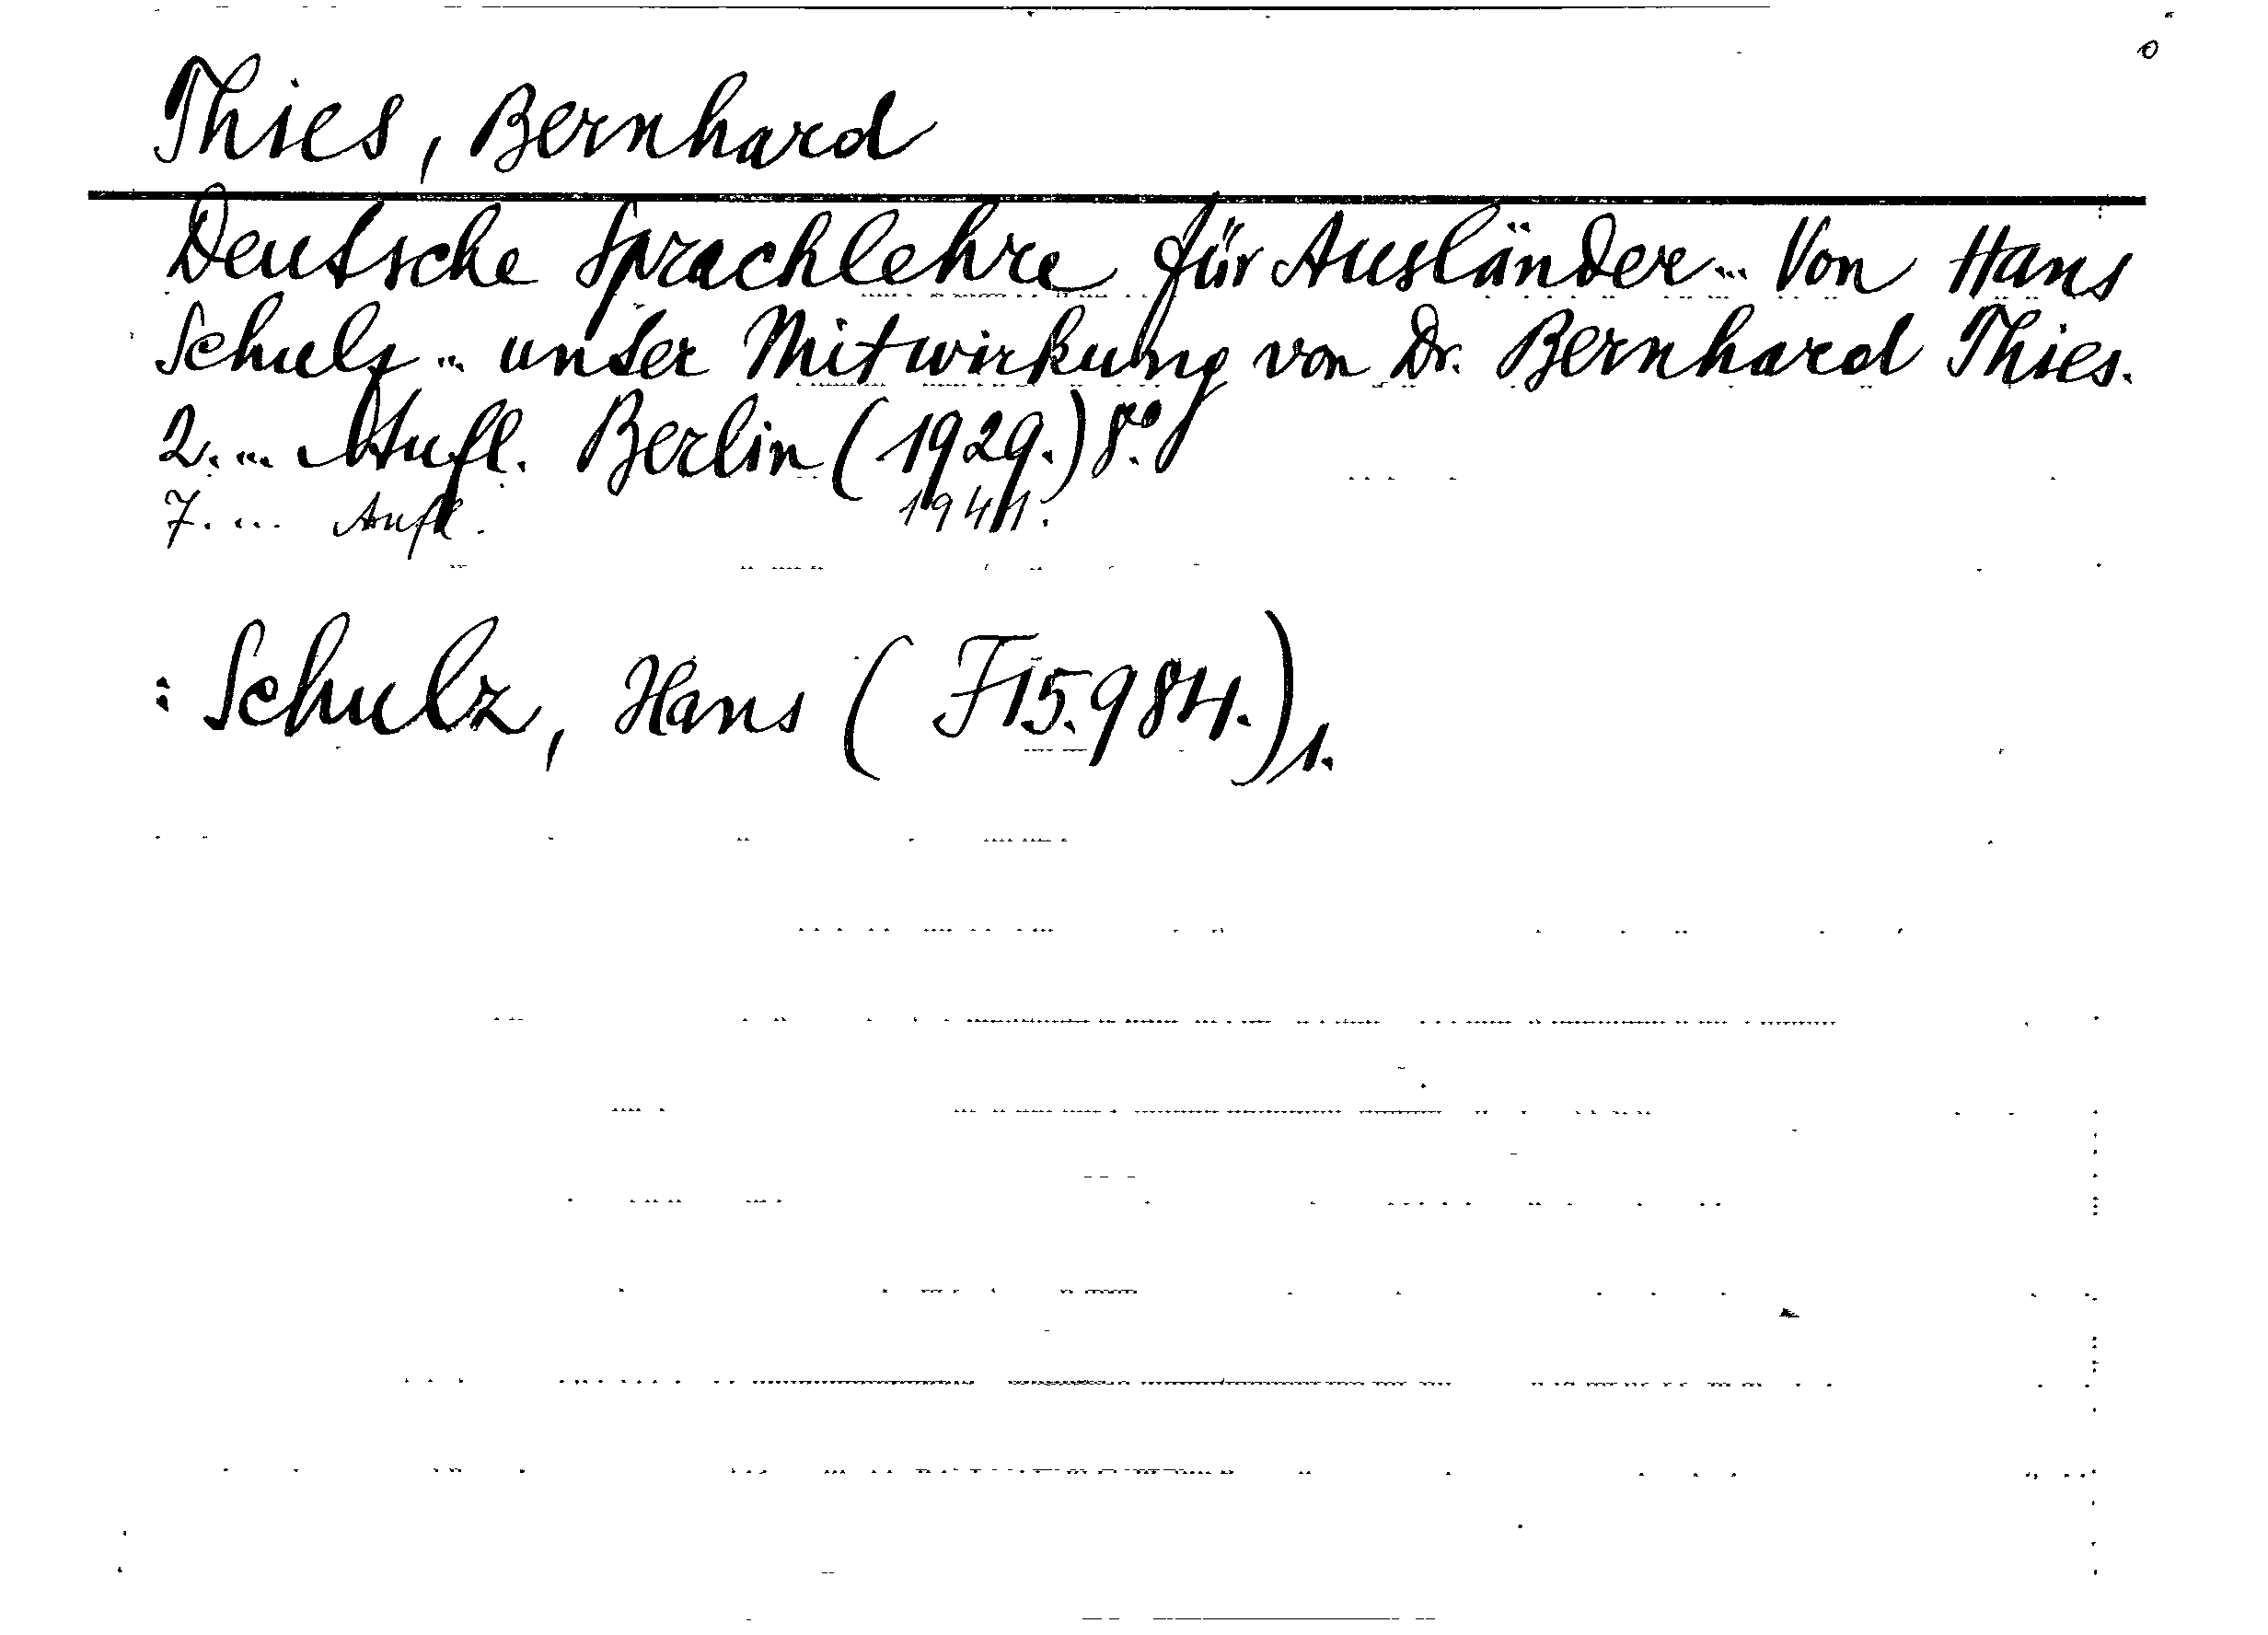 Thies, Bernhard
Deutsche Sprachlehre für Ausländer... Von Hans
Schulz... unter Mitwirkung von Dr. Bernhard Thies.
2.... Aufl. Berlin (1929.) 8°.
7.... Aufl. 1941.
: Schulz, Hans (F15.984.)1.